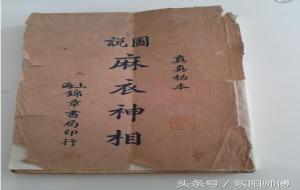 真真秘本
圖說
麻衣神相
上海
錦章書局印行
头条号/紫阳师傅